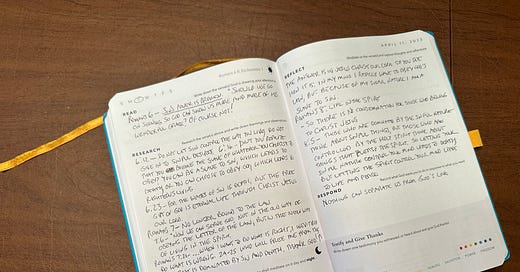 SHOWIES
Romans 6-8, Ecclesiastes 1
READ
ROMANS 6 - SIN'S POWER IS BROKEN "SHOULD WE GO
ON SINNING SO GOD CAN SHOW US MORE AND MORE OF HIS
WONDERFUL GRACE? OF COURSE NOT!
RESEARCH
6:12 - DO NOT LET SIN CONTROL THE WAY YOU LIVE; DO NOT
GIVE IN TO SINFUL DESIRES. 6:16 - DON'T YOU REALIZE
THAT YOU BECOME THE SLAVE OF WHATEVER YOU CHOOSE TO
OBEY? YOU CAN BE A SLAVE TO SIN, WHICH LEADS TO
DEATH, OR YOU CAN CHOOSE TO OBEY GOD WHICH LEADS TO
RIGHTEOUS LIVING
6:23 - FOR THE WAGES OF SIN IS DEATH, BUT THE FREE
GIFT OF GOD IS ETERNAL LIFE THROUGH CHRIST JESUS
OUR LORD.
ROMANS 7 - NO LONGER BOUND TO THE LAW
7:6 - NOW WE CAN SERVE GOD, NOT IN THE OLD WAY OF
OBEYING THE LETTER OF THE LAW, BUT IN THE NEW WAY
OF LIVING IN THE SPIRIT.
ROMANS 7:21 - WHEN I WANT TO DO WHAT IS RIGHT, I INEVITABLY
DO WHAT IS WRONG. 24-25 WHO WILL FREE ME FROM THIS
LIFE THAT IS DOMINATED BY SIN AND DEATH. THANK GOD!
APRIL 11, 2022
REFLECT
THE ANSWER IS IN JESUS CHRIST OUR LORD. SO YOU SEE
HOW IT IS: IN MY MIND I REALLY WANT TO OBEY GOD'S
LAW, BUT BECAUSE OF MY SINFUL NATURE I AM A
SLAVE TO SIN
ROMANS 8 - LIFE IN THE SPIRIT
SO THERE IS NO CONDEMNATION FOR THOSE WHO BELONG
TO CHRIST JESUS
8:5 - THOSE WHO ARE DOMINATED BY THE SINFUL NATURE
THINK ABOUT SINFUL THINGS, BUT THOSE WHO ARE
CONTROLLED BY THE HOLY SPIRIT THINK ABOUT
THINGS THAT PLEASE THE SPIRIT. SO LETTING YOUR
SINFUL NATURE CONTROL YOUR MIND LEADS TO DEATH,
BUT LETTING THE SPIRIT CONTROL YOUR MIND LEADS
TO LIFE AND PEACE
RESPOND
NOTHING CAN SEPARATE US FROM GOD'S LOVE
Testify and Give Thanks